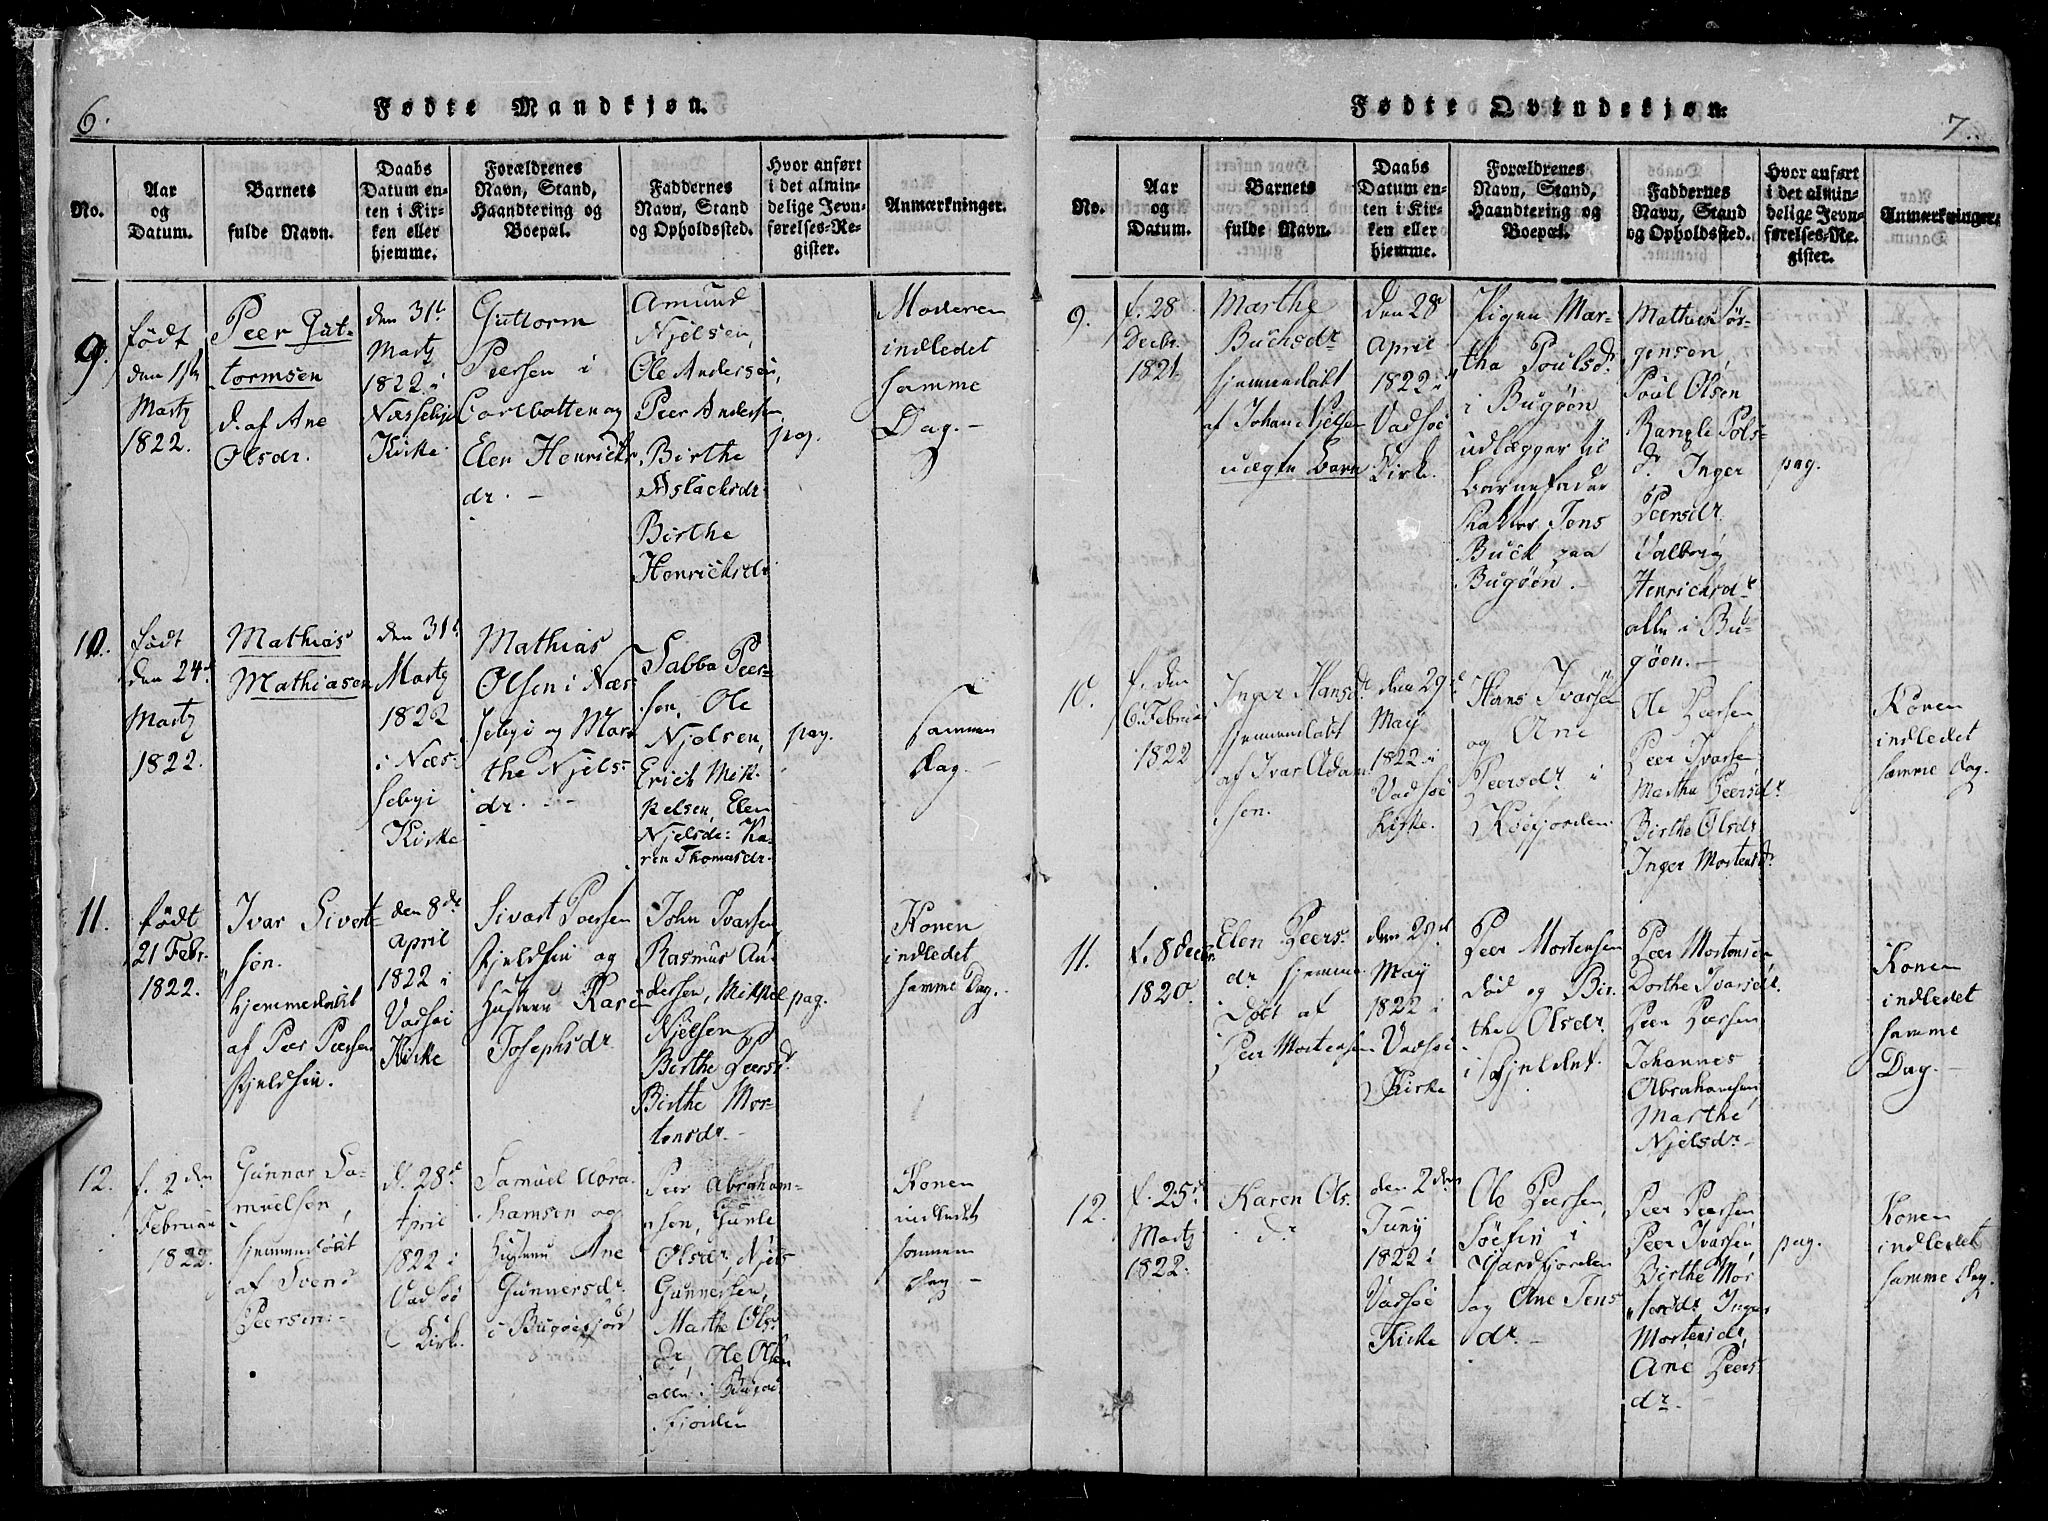 6.
Fødte Mandkjøn.
No.
Aar
og
Datum.
Barnets
fulde Navn.
Daabs
Datum en-
ten i Kir-
ken eller
hjemme.
Forældrenes
Navn, Stand,
Haandtering og
Boepæl.
Faddernes
Navn, Stand
og Opholdssted.
Hvor anført
i det almin-
delige Jevn-
førelses-Re-
gister.
Anmærkninger.
9.
født
den
Martz
1822.
Peer Gut-
tormsen
d. af Ane
Olsdr.
den 31t
Martz
1822 i
Næssebye
Kirke
Guttorm
Peersen i
Carlbotten og
Elen Henrichs
dr. -
Amund
Njelsen,
Ole Andersen,
Peer Andersen,
Birthe
Aslachsdr.
Birthe
Henrichsdr
pag.
Moderen
indledet
samme
Dag. -
10.
født
den 24d
Martz
1822.
Mathias
Mathiasen
den 31t
Martz
1822
i Næs-
sebyi
Kirke
Mathias
Olsen i Næs-
sebyi og Mar-
the Njels-
dr. -
Sabba Peer-
sen, Ole
Njelsen,
Erick Mik-
kelsen, Elen
Njelsdr: Ka-
ren Thomasdr.
pag.
sammen
Dag. -
11.
født
21 Febr.
1822.
Ivar Sivert-
sen.
hjemmedøbt
af Peer Peersen
Fjeldfin.
den 8de
April
1822 i
Vadsøe
Kirke
Sivart Peersen
Fjeldfin og
Hustrue Kari
Josephsdr
John Ivarsen,
Rasmus An-
dersen, Mikkel
Njelsen
Birthe Peersd
Birthe Mor-
tensdr. -
pag.
Konen
indledet
samme Dag.
12.
f. 2den
Februar
1822.
Gunnar Sa-
muelsen,
hjemmedøbt
af Svend
Peersen. -
d. 28de
April
1822 i
Vadsø
Kirk.
Samuel Abra-
hamsen og
Hustrue Ane
Gunnersdr
i Bugøefjord
Peer Abraham-
sen, Gunle
Olsdr, Njels
Gunnersen,
Marthe Ols-
dr, Ole Olsen
alle i Bugøe
Fjorden
Konen
indledet
sammem
Dag -
Fødte Qvindekjøn.
7.
No.
Aar
og
Datum.
Barnets
fulde Navn.
Daabs
Datum en-
ten i Kir-
ken eller
hjemme.
Forældrenes
Navn, Stand,
Haandtering og
Boepæl.
Faddernes
Navn, Stand
og Opholdssted.
Hvor anført
i det almin-
delige Jevn-
førelses-Re-
gister.
Anmærkninger.
9.
f. 28
Decbr.
1821
Marthe
Buchsdr
hjemmedøbt
af Johan Njelsen
uægte Barn
den 28
April
1822 i
Vadsøe
Kirk.
Pigen Mar-
tha Poulsd.
i Bugøen
udlægger til
Barnefader
Jens
Buck paa
Bugøen.
Mathis Jør-
gensen,
Poul Olsen
Pols-
d. Inger
Peersdr
Valborg
Henrichsdr
alle i Bu-
gøen. -
pag.
10.
f. den
6. Februar
1822
Inger Hansdr
hjemmedøbt
af Ivar Adam
sen.
den 29de
May
1822 i
Vadsøe
Kirke.
Hans Ivarsen
og Ane
Peersdr i
Kiøefjorden
Ole Peersen
Peer Ivarsen
Marthe Peersdr
Birthe Olsdr
Inger Mortensd.
Konen
indledet
samme Dag.
11.
f. 8 Decbr.
1820.
Elen Peers-
dr hjemme
døbt af
Peer Mortensen
den 29de
May
1822 i
Vadsøe
Kirke
Peer Mortensen
død og Bir-
the Olsdr
i Fjeldet.
Peer Mortensen
Dorthe Ivarsdr.
Peer Peersen
Johannes
Abrahamsen,
Marthe
Njelsdr -
Konen
indledet
samme
Dag. -
12.
f. 25d
Martz
1822.
Karen Ols-
dr
den 2den
Juny
1822 i
Vadsøe
Kirke
Ole Peersen,
Søefin i
og Ane Jens
dr. -
Peer Peersen
Peer Ivarsen
Birthe Mor
tensdr. Inger
Mortensdr,
Ane Peers
dr. -
pag.
Konen
indledet
samme Dag.